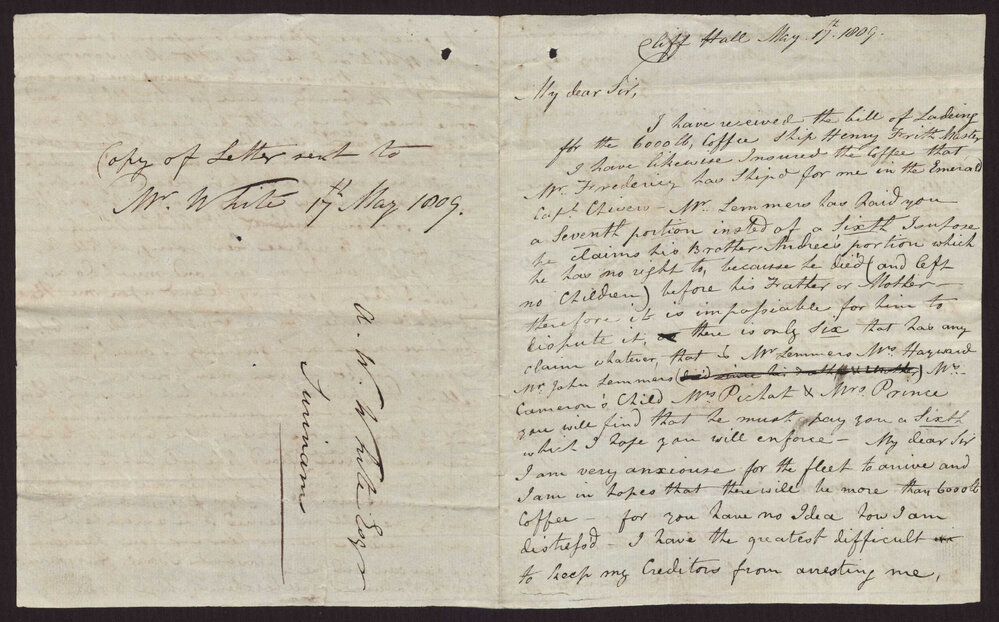 Copy of Letter sent to
Mr. White 17th May 1809.
A. W. White Esqr
Surinam
Cliff Hall May 17th. 1809.
My dear Sir,
I have received the bill of Ladeing
for the 6000lb, Coffee Ship Henry Frith Master
I have likewise Insured the Coffee that
Mr. Frederiey has Shipd for me in the Emerald
Capt. Chivers - Mr. Lemmers has paid you
a Seventh portion insted of a Sixth I supose
he claims his Brother Andrees portion which
he has no right to, because he died (and left
no Children) before his Father or Mother -
therefore it is impossiable for him to
dispute it, there is only Six that has any
claim whatever, that is Mr Lemmers Mrs. Hayward
Mr. John Lemmers (died since his father & Mother) Mrs.
Cameron's Child Mrs Pichat & Mrs. Prince
you will find that he must pay you a Sixth
which I hope you will enforce - My dear Sir
I am very anxiouse for the fleet to arrive and
I am in hopes that there will be more than 6000lb
Coffee - for you have no Idea how I am
distressd - I have the greatest difficult
to keep my Creditors from arresting me,